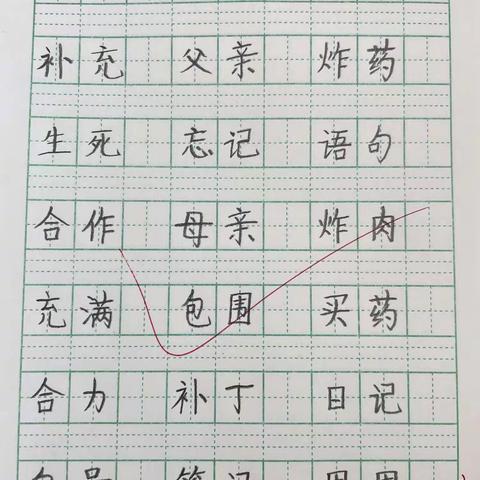 补充 父亲 炸药
生死 忘记 语句
合作 母亲 炸肉
充满 包围 买药
合力 补丁 日记